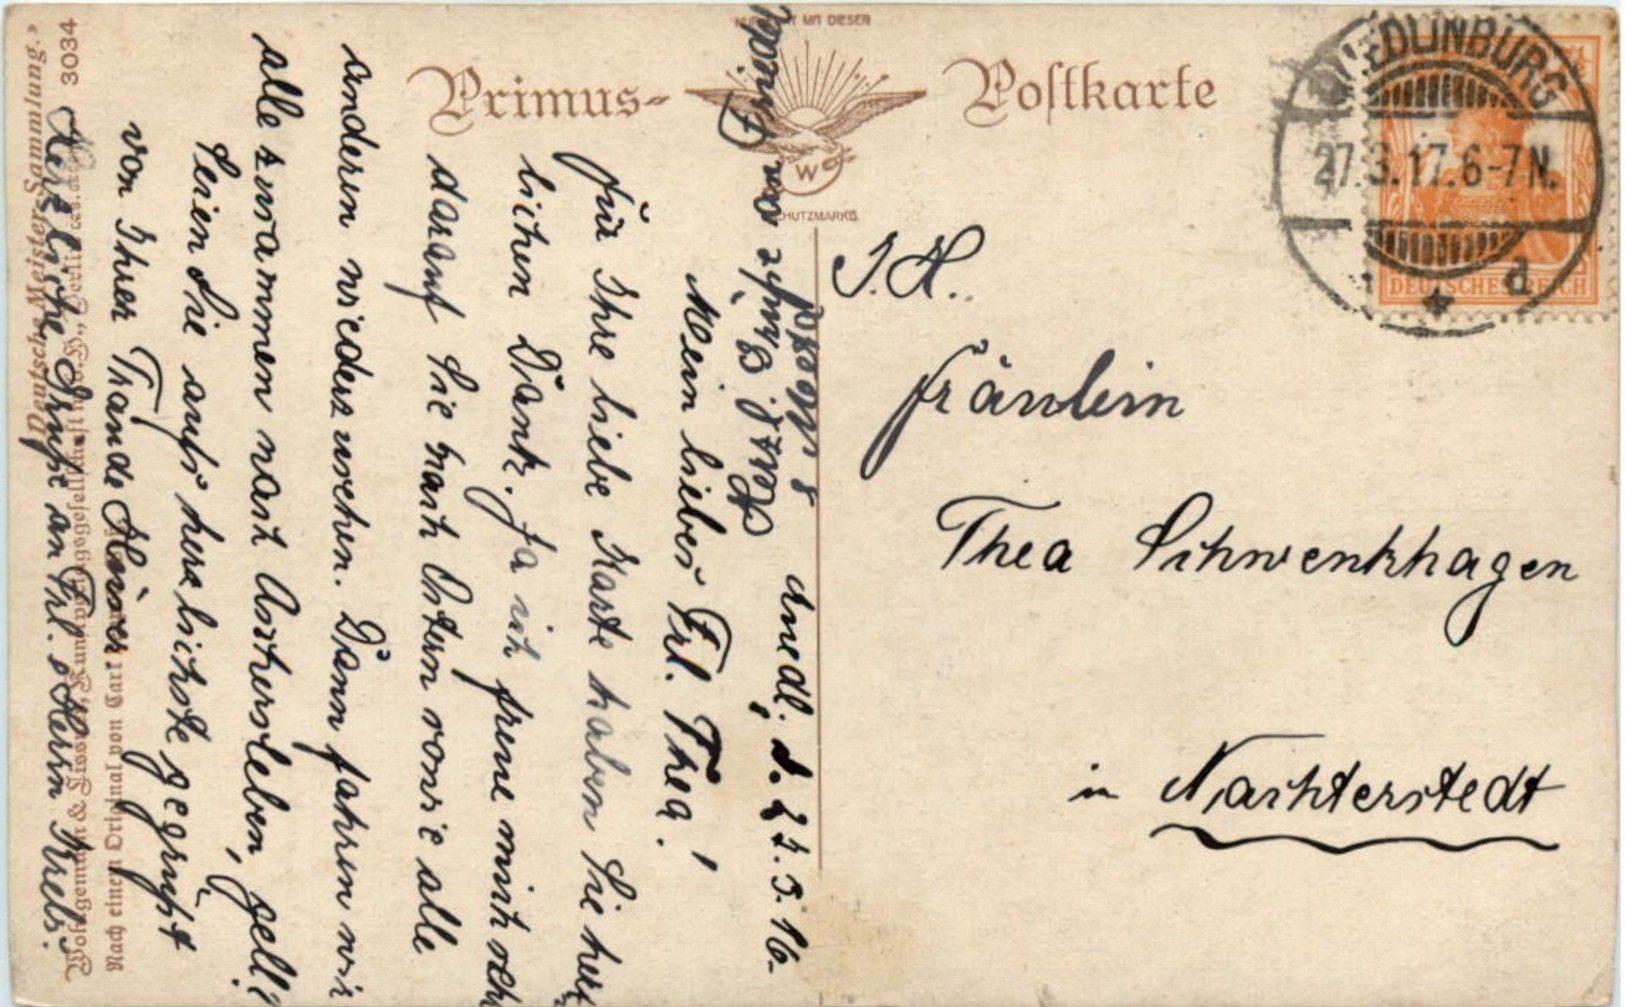 Primus- Postkarte
MIT DIESER
SCHUTZMARKE
W
QUEDLINBURG
27.3.17.6-7N.
* a
DEUTSCHES REICH
S. H.
Fräulein
Thea Schwenkhagen
in Nachterstedt
Quedl., d. 27.3.16.
Mein liebes Frl. Thea!
Für Ihre liebe Karte haben Sie herz
lichen Dank. Ja ich freue mich sehr
darauf Sie nach Ostern sowie alle
anderen wiederzusehen. Dann fahren wir
alle zusammen nach Aschersleben, gell?
Seien Sie aufs herzlichste gegrüßt
von Ihrer Trude Heiner
Herzliche Grüße an Frl. & Herrn Krebs.
„Deutsche Meister-Sammlung.“
3034
Nach einem Original von Carl